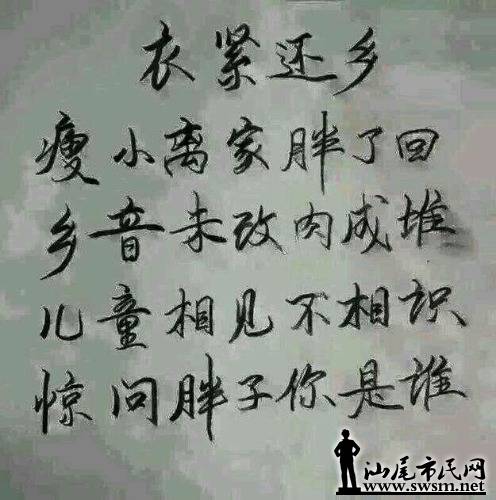 衣紧还乡
瘦小离家胖了回
乡音未改肉成堆
儿童相见不相识
惊问胖子你是谁
汕尾市民网
www.swsm.net